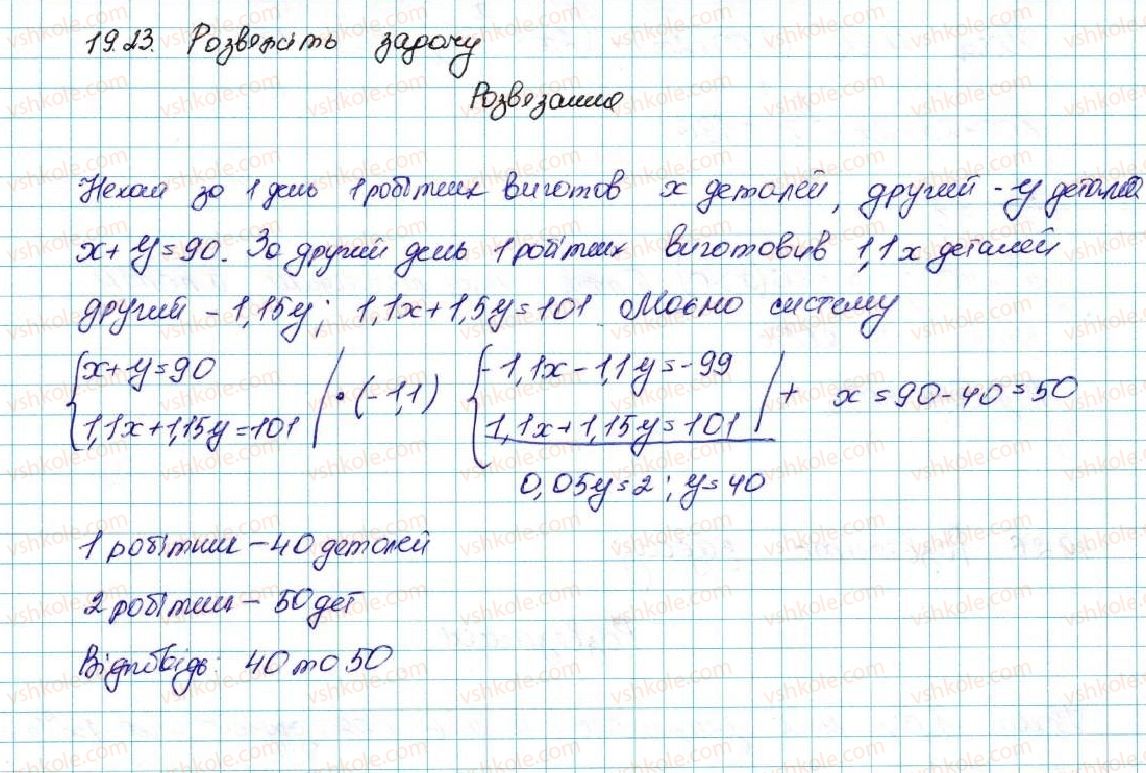 19.23. Розвежіть задачу
Розвезання
Нехай за 1 день 1 робітник виготов x деталей, другий - y деталей
x+y=90. За другий день 1 робітник виготовив 1,1x деталей
другий - 1,15y; 1,1x+1,5y=101 Маємо систему
{x+y=90 |·(-1,1) {-1,1x-1,1y=-99 |+ x=90-40=50
1,1x+1,15y=101 1,1x+1,15y=101
0,05y=2; y=40
1 робітник - 40 деталей
2 робітник - 50 дет
Відповідь: 40 та 50
vshkole.com